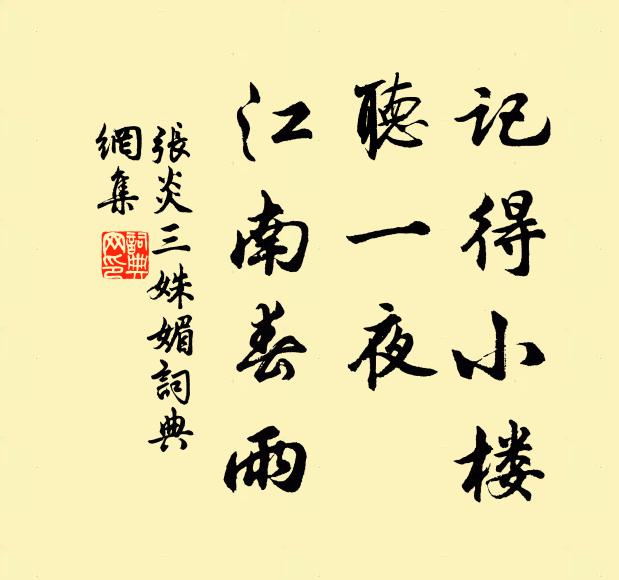 记得小楼
聽一夜
江南春雨
張炎三姝媚詞典
網集
詞典
网印